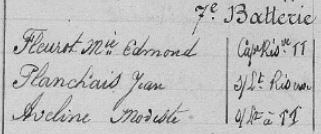 7e Batterie
Fleurot Mie Edmond Cape Risve TT
Planchais Jean s/Lt Riserve
Aveline Modeste s/Lt à TT